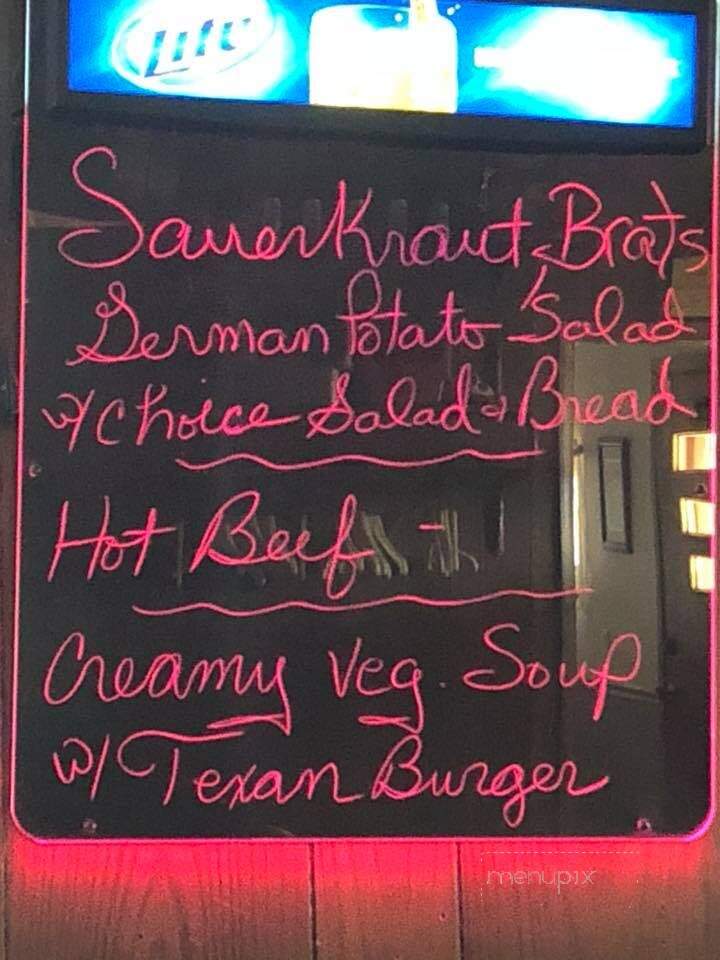 Lite
SauerKraut, Brats
German Potato Salad
w/ Choice Salad & Bread
Hot Beef -
Creamy Veg. Soup
w/ Texan Burger
menupix